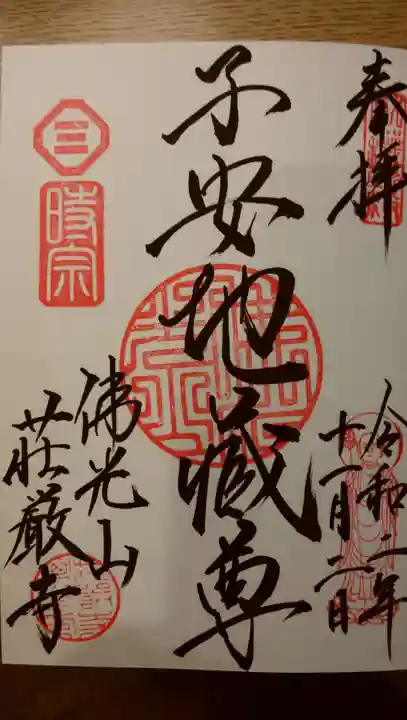 奉拝
令和二年
十一月二日
子安地蔵尊
三
時宗
佛光山
荘厳寺